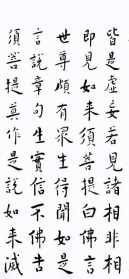 皆是虛妄若見諸相非相
即見如来須菩提白佛言
世尊頗有眾生得聞如是
言說章句生實信不佛告
須菩提莫作是說如来滅